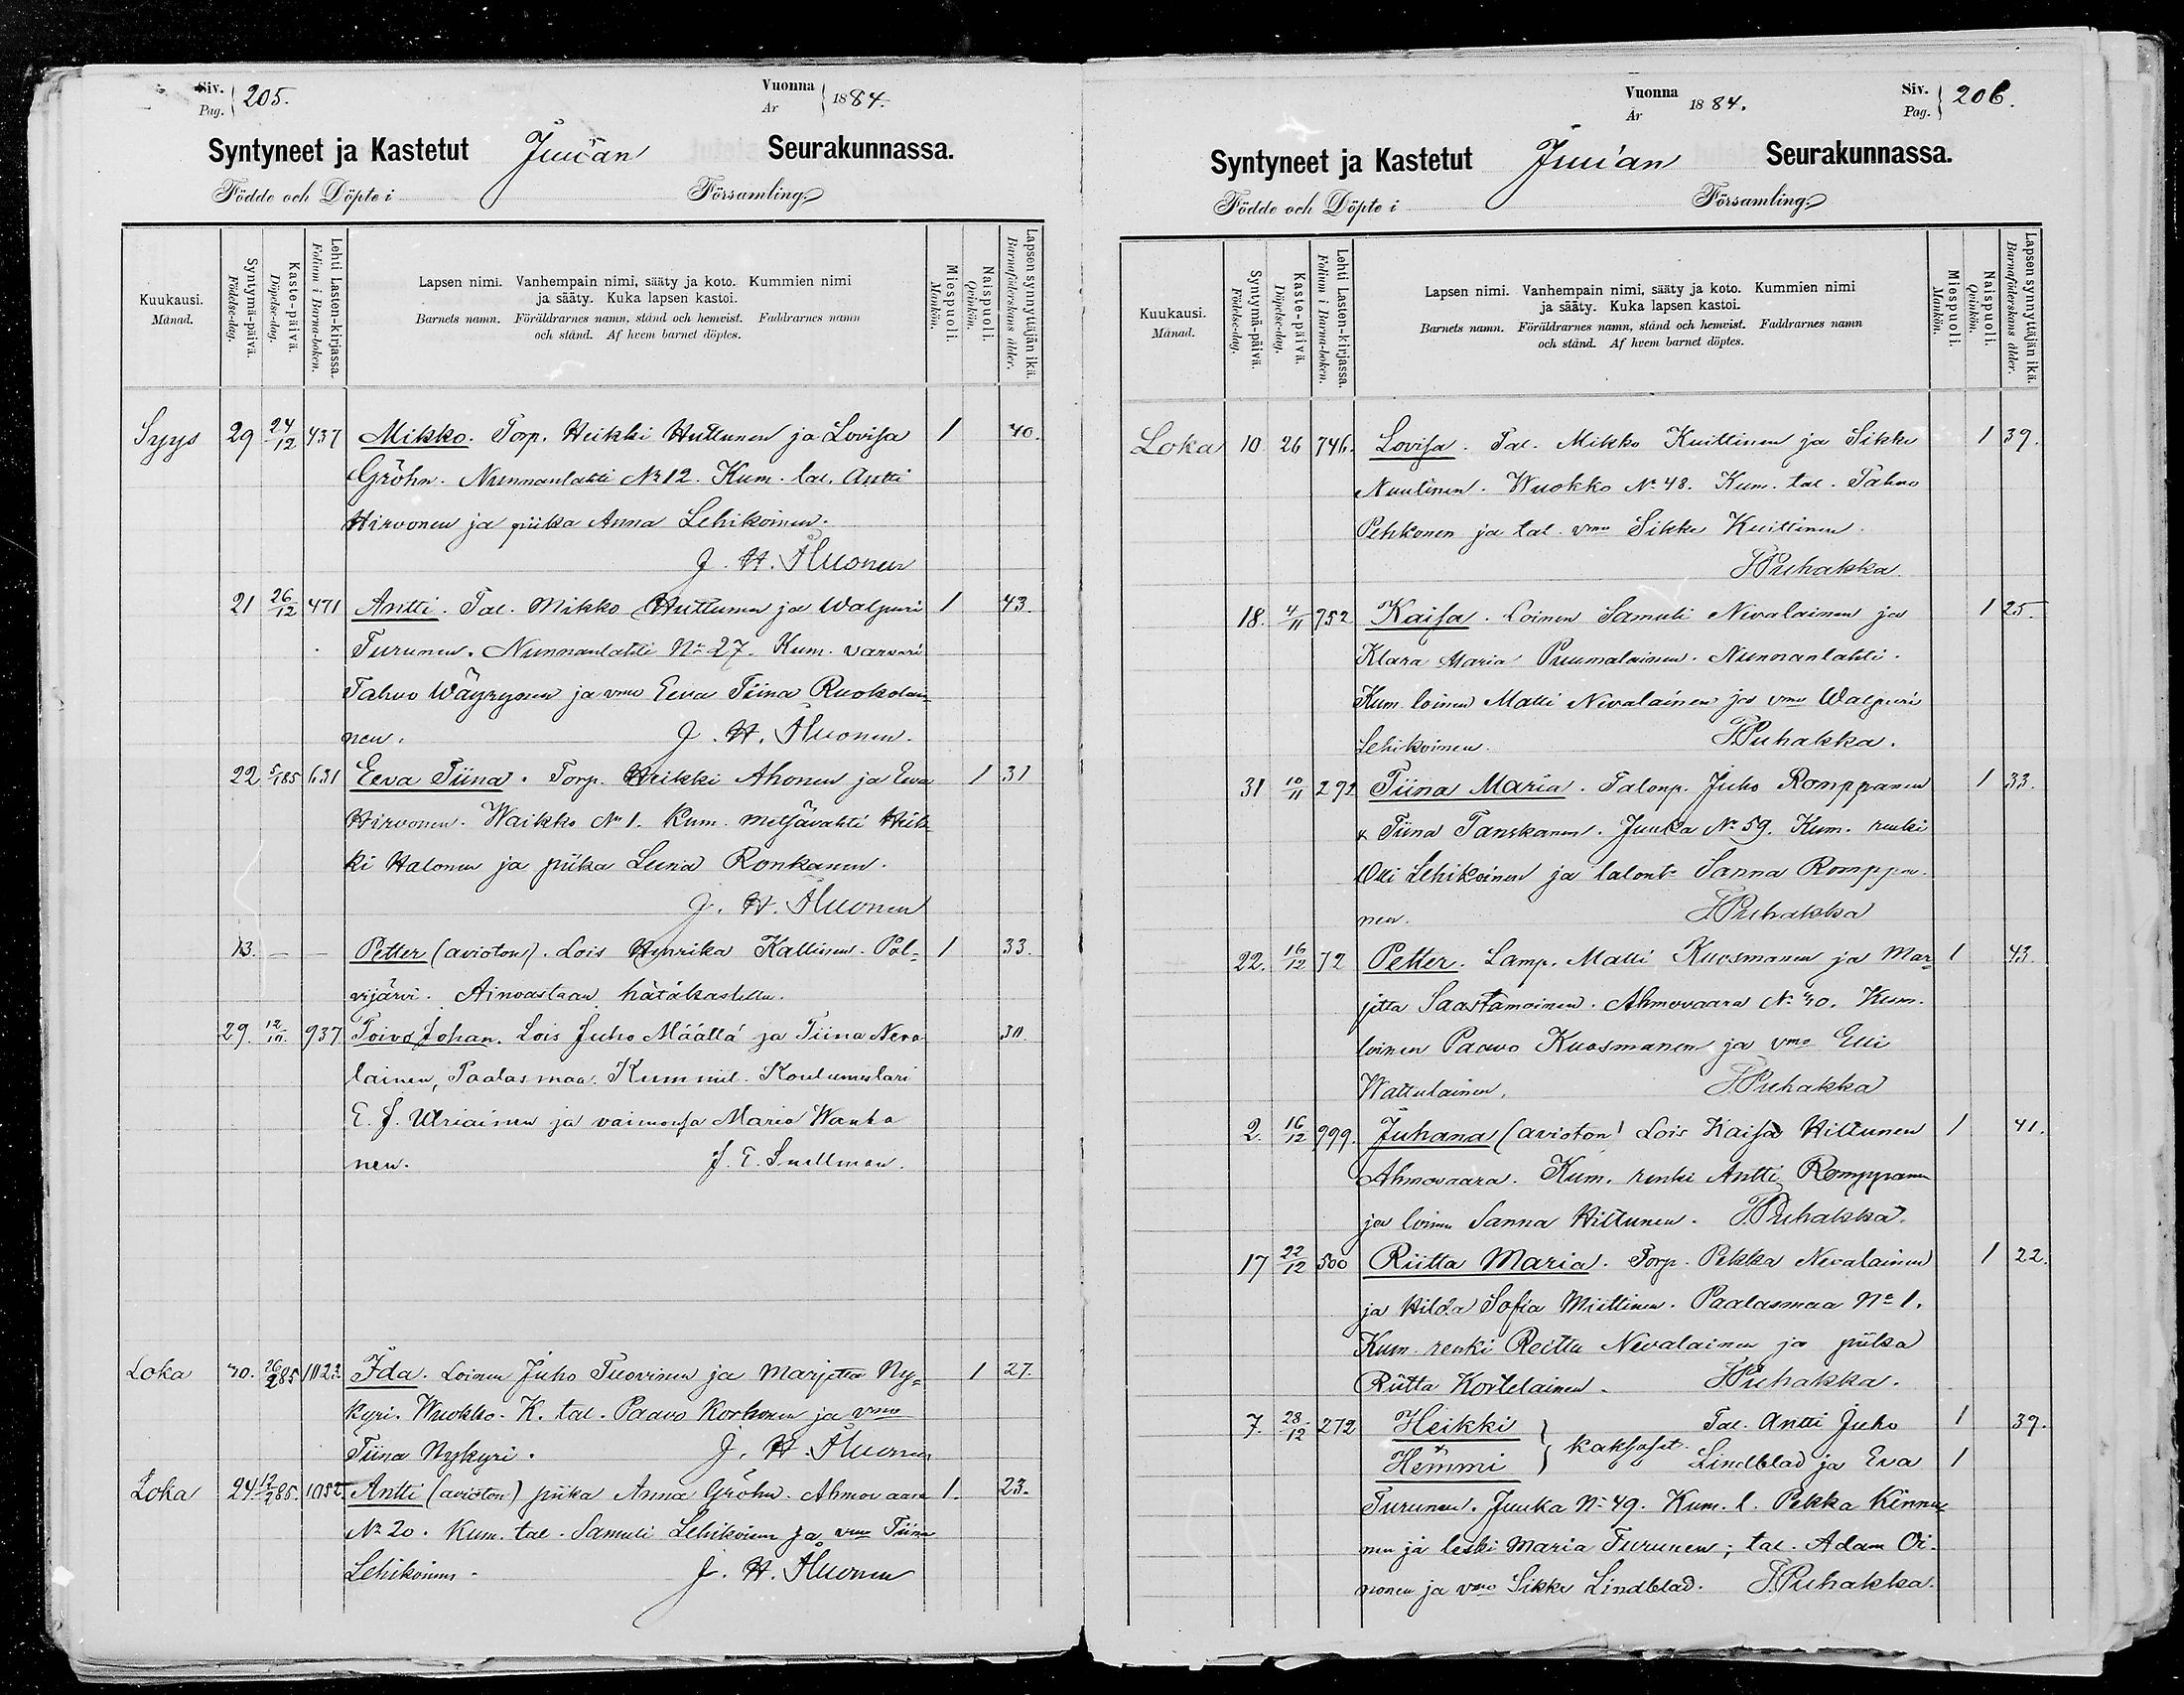 Siv. Pag. 205.
Vuonna År 1884.
Syntyneet ja Kastetut Juuan Seurakunnassa.
Födde och Döpte i Församling.
Kuukausi. Månad.
Syntymä-päivä. Födelse-dag.
Kaste-päivä. Döpelse-dag.
Lehti Lasten-kirjassa. Folium i Barna-boken.
Lapsen nimi. Vanhempain nimi, sääty ja koto. Kummien nimi
ja sääty. Kuka lapsen kastoi.
Barnets namn. Föräldrarnes namn, stånd och hemvist. Faddrarnes namn
och stånd. Af hvem barnet döptes.
Miespuoli. Mankön.
Naispuoli. Qvinkön.
Lapsen synnyttäjän ikä. Barnaföderskans ålder.
Syys 29 24/12 437 Mikko. Torp. Heikki Huttunen ja Lovisa 1 40.
Gröhn. Nunnanlahti № 12. Kum. tal. Antti
Hirvonen ja piika Anna Lehikoinen.
J. H. Åluonen
21 26/12 471 Antti. Tal. Mikko Huttunen ja Walpuri 1 43.
Turunen. Nunnanlahti № 27. Kum. varvari
Tahvo Wäyrynen ja vmo Eeva Tiina Ruokolai-
nen. J. H. Åluonen.
22 5/1 85 631 Eeva Tiina. Torp. Heikki Ahonen ja Eeva 1 31
Hirvonen. Waikko № 1. Kum. metsävahti Heik-
ki Halonen ja piika Leena Ronkanen.
J. H. Åluonen
13. — — Petter (avioton). Lois Hynrika Kallinen. Pol- 1 33.
vijärvi. Ainoastaan hätäkastettu.
29. 12/10. 937 Toivo Johan. Lois Juho Määttä ja Tiina Neva 30.
lainen, Paalasmaa. Kummit. Koulumestari
E. J. Uriainen ja vaimonsa Maria Wanha
nen. J. E. Snellman.
Loka 30. 26/2 85 1023 Ida. Loinen Juho Tuovinen ja Marjetta Ny- 1 27.
kyri. Wuokko. K. tal. Paavo Korhonen ja vmo
Tiina Nykyri. J. H. Åluonen
Loka 24 12/2 85. 1052. Antti (avioton) piika Anna Gröhn. Ahmovaara 1. 23.
№ 20. Kum. tal. Samuli Lehikoinen ja vmo Tiina
Lehikoinen. J. H. Åluonen
Vuonna År 1884.
Siv. Pag. 206.
Syntyneet ja Kastetut Juuan Seurakunnassa.
Födde och Döpte i Församling.
Kuukausi. Månad.
Syntymä-päivä. Födelse-dag.
Kaste-päivä. Döpelse-dag.
Lehti Lasten-kirjassa. Folium i Barna-boken.
Lapsen nimi. Vanhempain nimi, sääty ja koto. Kummien nimi
ja sääty. Kuka lapsen kastoi.
Barnets namn. Föräldrarnes namn, stånd och hemvist. Faddrarnes namn
och stånd. Af hvem barnet döptes.
Miespuoli. Mankön.
Naispuoli. Qvinkön.
Lapsen synnyttäjän ikä. Barnaföderskans ålder.
Loka 10. 26 746. Lovisa. Tal. Mikko Kuittinen ja Sikke 1 39.
Nuutinen. Wuokko № 48. Kum. tal. Tahvo
Pehkonen ja tal. vmo Sikke Kuittinen.
J. Puhakka.
18. 4/11 752 Kaisa. Loinen Samuli Nevalainen ja 1 25.
Klara Maria Puumalainen. Nunnanlahti.
Kum. loinen Matti Nevalainen ja vmo Walpuri
Lehikoinen. J. Puhakka.
31 10/11 292 Tiina Maria. Talonp. Juho Romppanen 1 33.
& Tiina Tanskanen. Juuka № 59. Kum. renki
Olli Lehikoinen ja talont. Sanna Romppa-
nen. J. Puhakka
22. 16/12 72 Petter. Lamp. Matti Kuosmanen ja Mar- 1 43.
jetta Saastamoinen. Ahmovaara № 30. Kum.
loinen Paavo Kuosmanen ja vmo Elli
Wattulainen. J. Puhakka
2. 16/12 999. Juhana (avioton) Lois Kaisa Hiltunen 1 41.
Ahmovaara. Kum. renki Antti Romppanen
ja loinen Sanna Hiltunen. J. Puhakka.
17 22/12 500 Riitta Maria. Torp. Pekka Nevalainen 1 22.
ja Hilda Sofia Miettinen. Paalasmaa № 1.
Kum. renki Reitta Nevalainen ja piika
Riitta Kortelainen. J. Puhakka.
7. 28/12 272 Heikki } Tal. Antti Juho 1 39.
Hemmi } kaksoset. Lindblad ja Eva 1
Turunen. Juuka № 49. Kum. l. Pekka Kinnu-
nen ja leski Maria Turunen; tal. Adam Oi-
nonen ja vmo Sikke Lindblad. J. Puhakka.